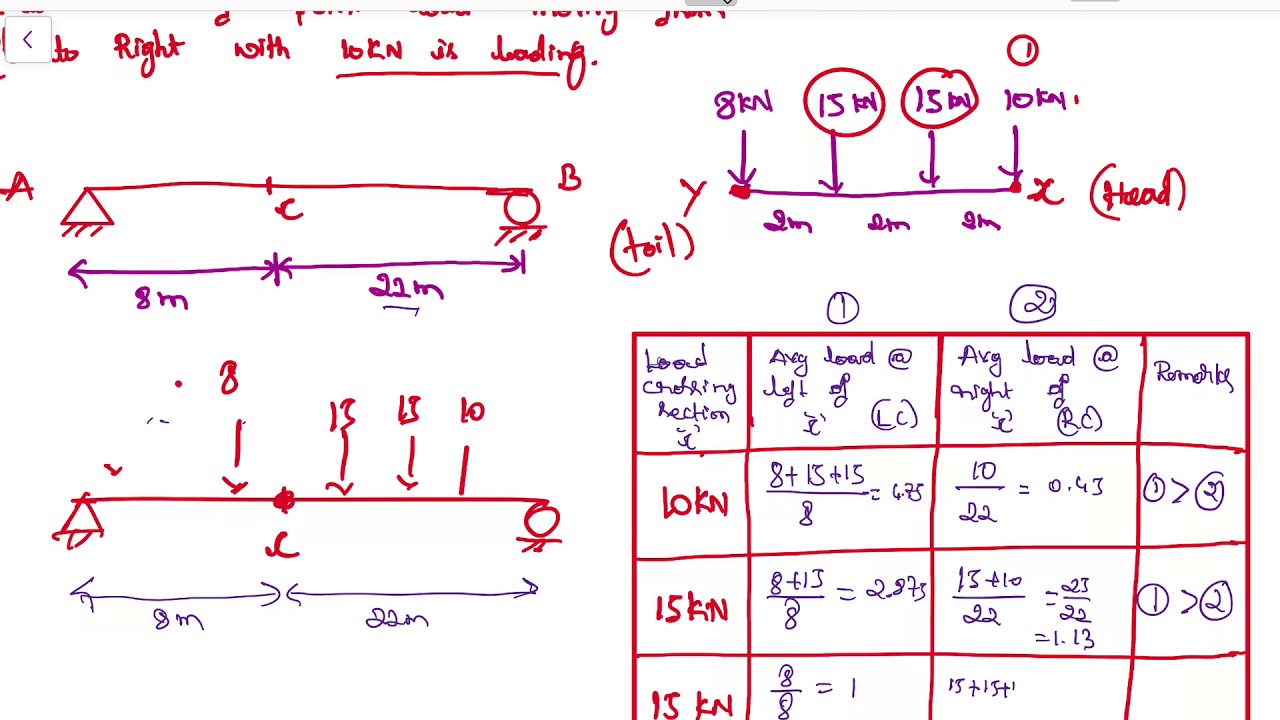 point load moving from
to Right with 10KN is leading.
①
8KN 15KN 15KN 10KN
A B
C
Y X (Head)
(tail)
2m 2m 2m
8m 22m
① ②
Load crossing section "x"
Avg load @ left of "x" (LC)
Avg load @ right of "x" (RC)
Remarks
8
15 15 10
10KN
8+15+15 / 8 = 4.75
10 / 22 = 0.43
① > ②
C
8m 22m
15KN
8+15 / 8 = 2.875
15+10 / 22 = 25 / 22 = 1.13
① > ②
15 KN
8 / 8 = 1
15+15+1